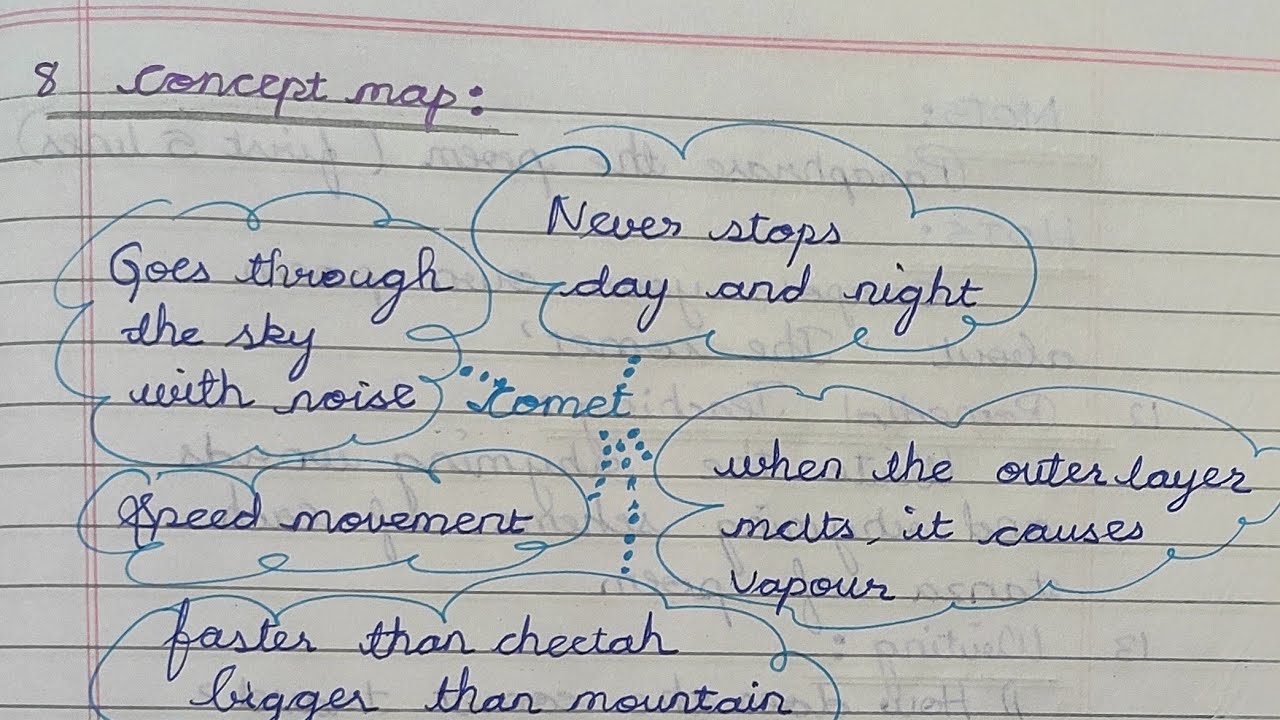 8 Concept map:
Never stops
day and night
Goes through
the sky
with noise
Comet
when the outer layer
melts, it causes
vapour
speed movement
faster than cheetah
bigger than mountain